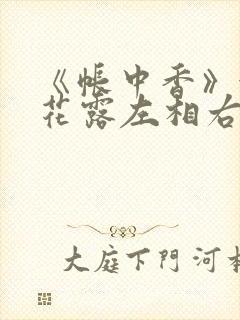 《帳中香》
花露左相右
大庭下門河